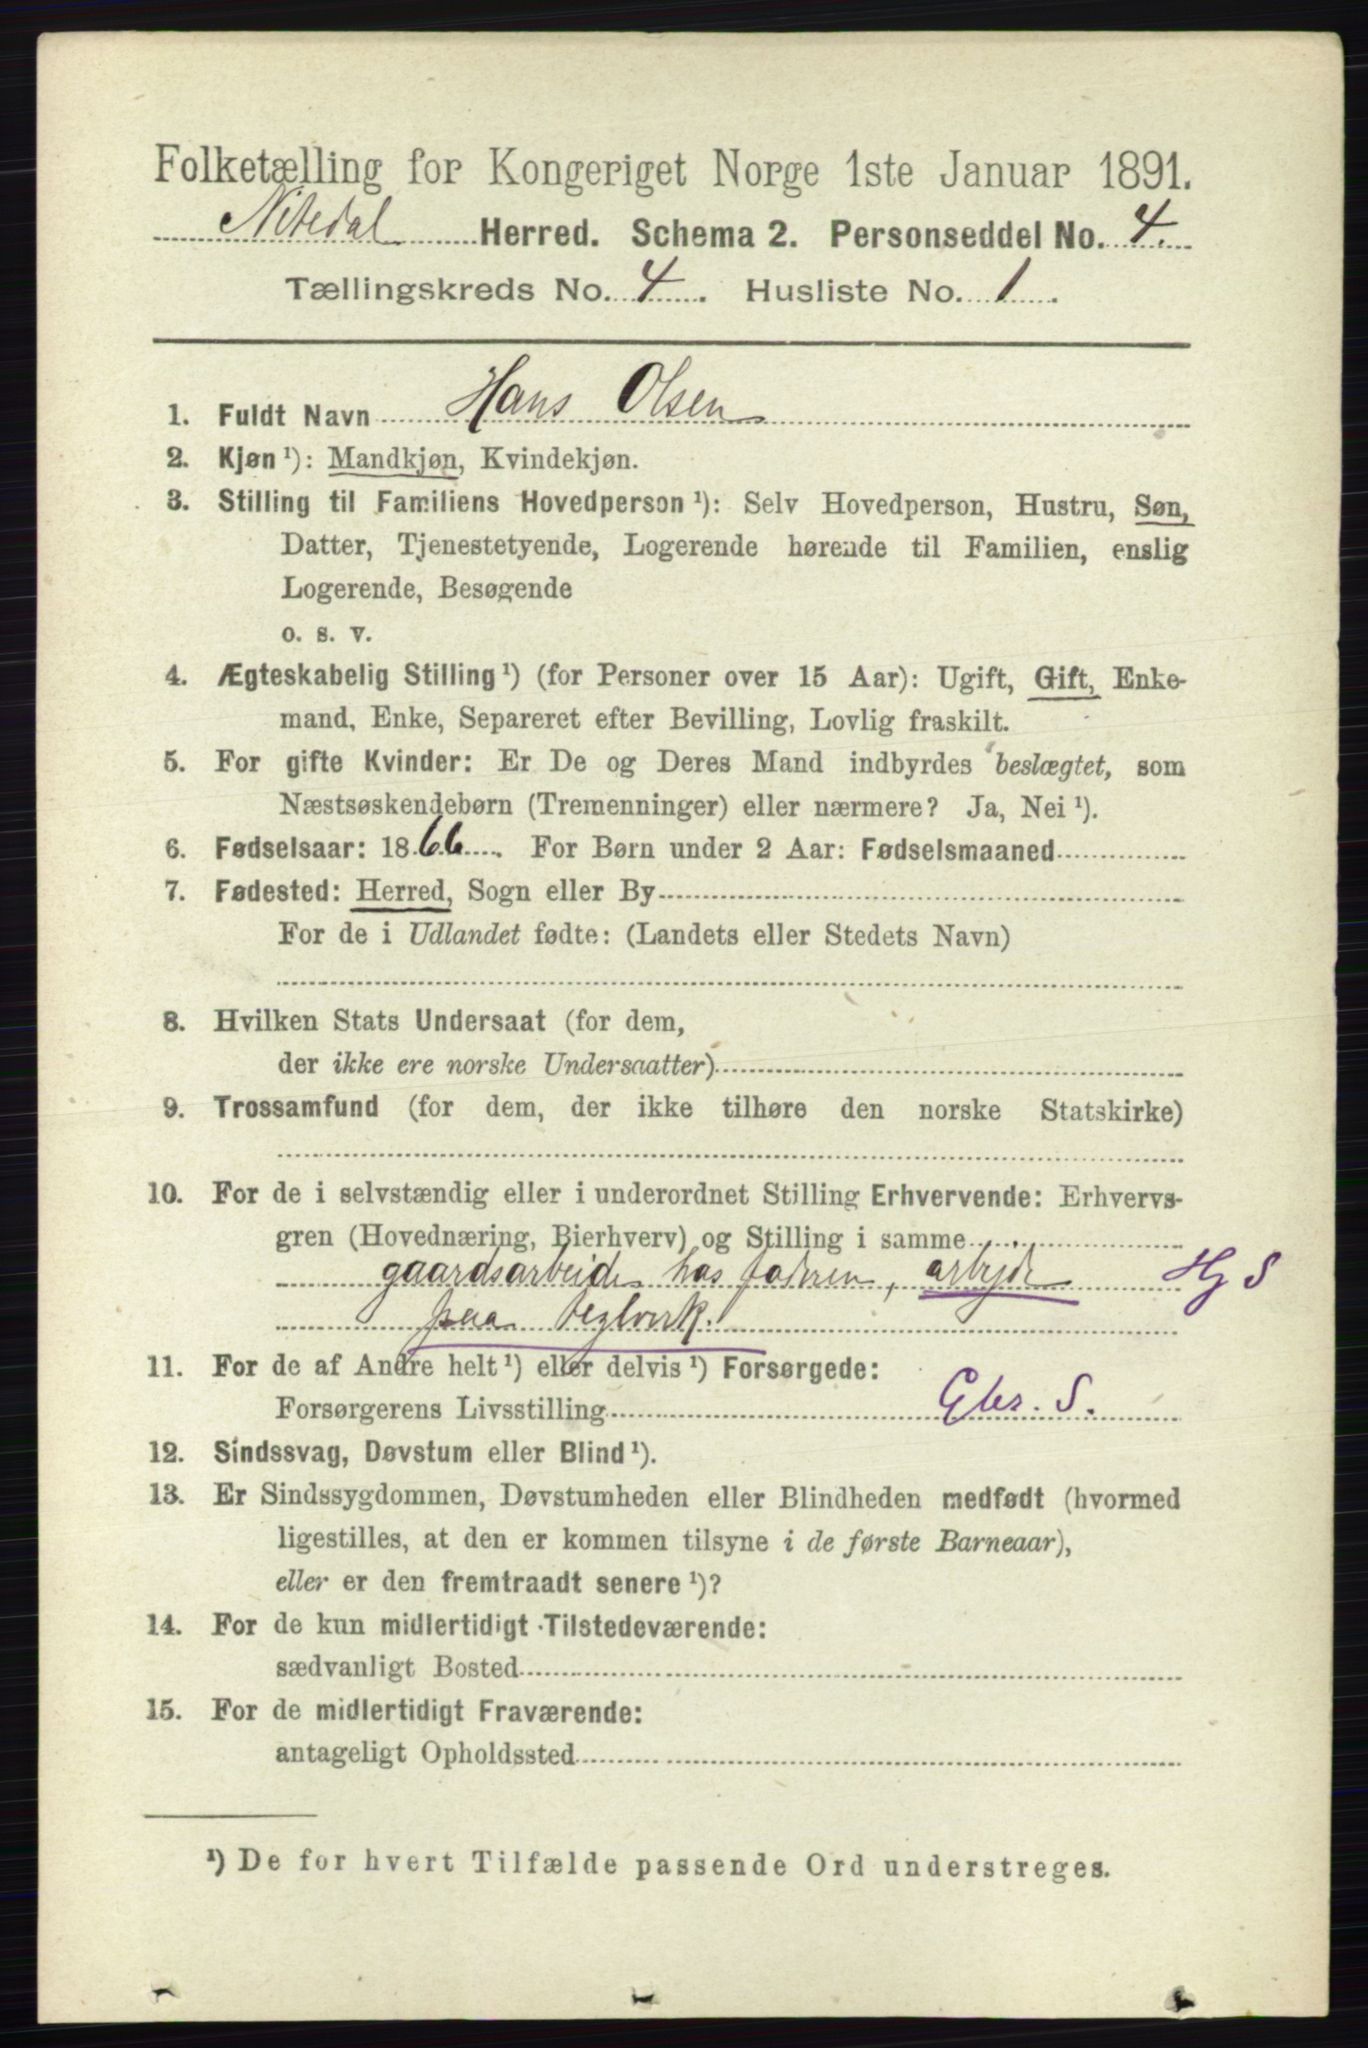 Folketælling for Kongeriget Norge 1ste Januar 1891.
Nitedal Herred. Schema 2. Personseddel No. 4.
Tællingskreds No. 4. Husliste No. 1.
1. Fuldt Navn Hans Olsen
2. Kjøn ¹): Mandkjøn, Kvindekjøn.
3. Stilling til Familiens Hovedperson ¹): Selv Hovedperson, Hustru, Søn,
Datter, Tjenestetyende, Logerende hørende til Familien, enslig
Logerende, Besøgende
o. s. v.
4. Ægteskabelig Stilling ¹) (for Personer over 15 Aar): Ugift, Gift, Enke-
mand, Enke, Separeret efter Bevilling, Lovlig fraskilt.
5. For gifte Kvinder: Er De og Deres Mand indbyrdes beslægtet, som
Næstsøskendebørn (Tremenninger) eller nærmere? Ja, Nei ¹).
6. Fødselsaar: 1866. For Børn under 2 Aar: Fødselsmaaned
7. Fødested: Herred, Sogn eller By
For de i Udlandet fødte: (Landets eller Stedets Navn)
8. Hvilken Stats Undersaat (for dem,
der ikke ere norske Undersaatter)
9. Trossamfund (for dem, der ikke tilhøre den norske Statskirke)
10. For de i selvstændig eller i underordnet Stilling Erhvervende: Erhvervs-
gren (Hovednæring, Bierhverv) og Stilling i samme
gaardsarbeide hos faderen, arbeide Hj S
paa teglverk.
11. For de af Andre helt ¹) eller delvis ¹) Forsørgede:
Forsørgerens Livsstilling S.
12. Sindssvag, Døvstum eller Blind ¹).
13. Er Sindssygdommen, Døvstumheden eller Blindheden medfødt (hvormed
ligestilles, at den er kommen tilsyne i de første Barneaar),
eller er den fremtraadt senere ¹)?
14. For de kun midlertidigt Tilstedeværende:
sædvanligt Bosted
15. For de midlertidigt Fraværende:
antageligt Opholdssted
¹) De for hvert Tilfælde passende Ord understreges.